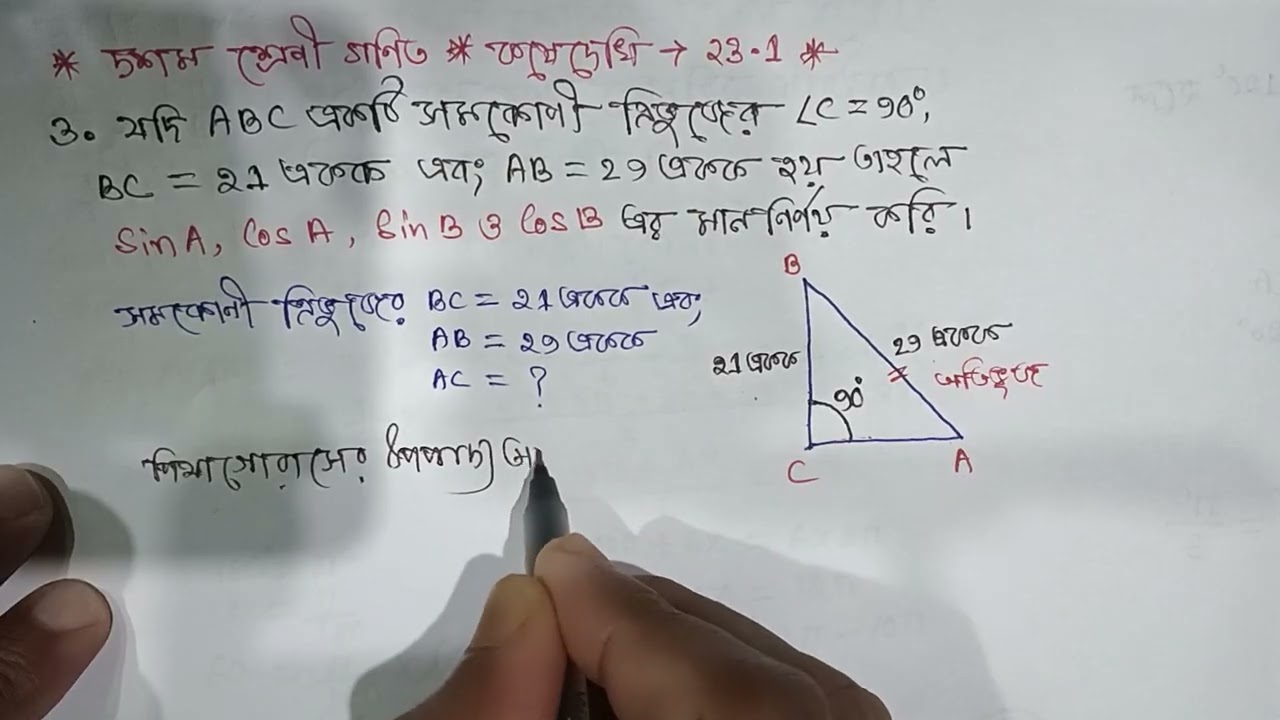 * দশম শ্রেণী গনিত * কষেদেখি → 23.1 *
3. যদি ABC একটি সমকোণী ত্রিভুজের ∠C = 90°,
BC = 21 একক এবং AB = 29 একক হয় তাহলে
sin A, cos A, sin B ও cos B এর মান নির্ণয় করি।
সমকোনী ত্রিভুজের BC = 21 একক এবং
AB = 29 একক
AC = ?
পিথাগোরাসের উপপাদ্য
B
21 একক
29 একক
অতিভুজ
90°
C
A